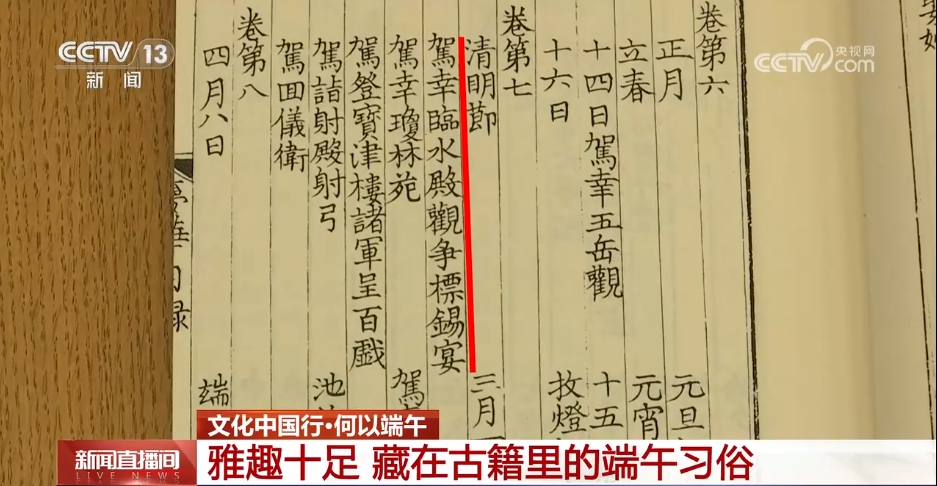 CCTV 13
新闻
央视网
CCTV com
卷第六
正月
立春
元旦
元宵
十四日駕幸五岳觀
十五
十六日
卷第七
清明節
三月
駕幸臨水殿觀争標錫宴
駕幸瓊林苑
駕
駕登寶津樓諸軍呈百戲
駕詣射殿射弓
池
駕回儀衛
卷第八
四月八日
端
文化中国行·何以端午
新闻直播间
LIVE NEWS
雅趣十足 藏在古籍里的端午习俗